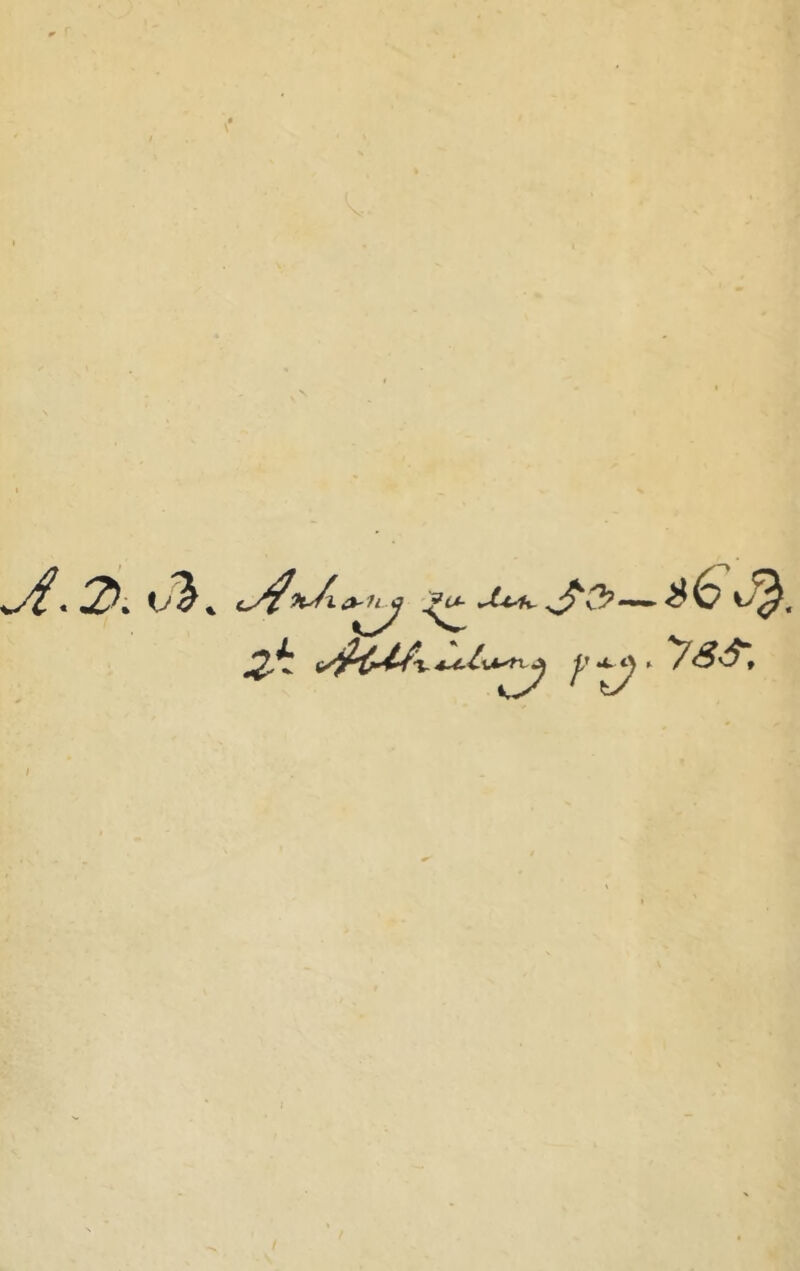 A. D. B. Anhang zu den 53—86 B.
2t Abtheilung pag. 785.